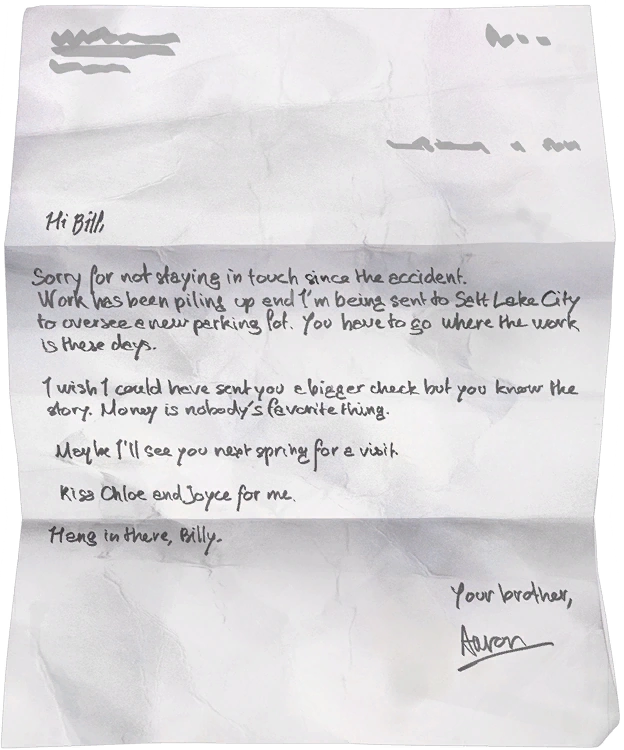 Hi Bill,
Sorry for not staying in touch since the accident.
Work has been piling up and I'm being sent to Salt Lake City
to oversee a new parking lot. You have to go where the work
is these days.
I wish I could have sent you a bigger check but you know the
story. Money is nobody's favorite thing.
Maybe I'll see you next spring for a visit.
Kiss Chloe and Joyce for me.
Hang in there, Billy.
Your brother,
Aaron